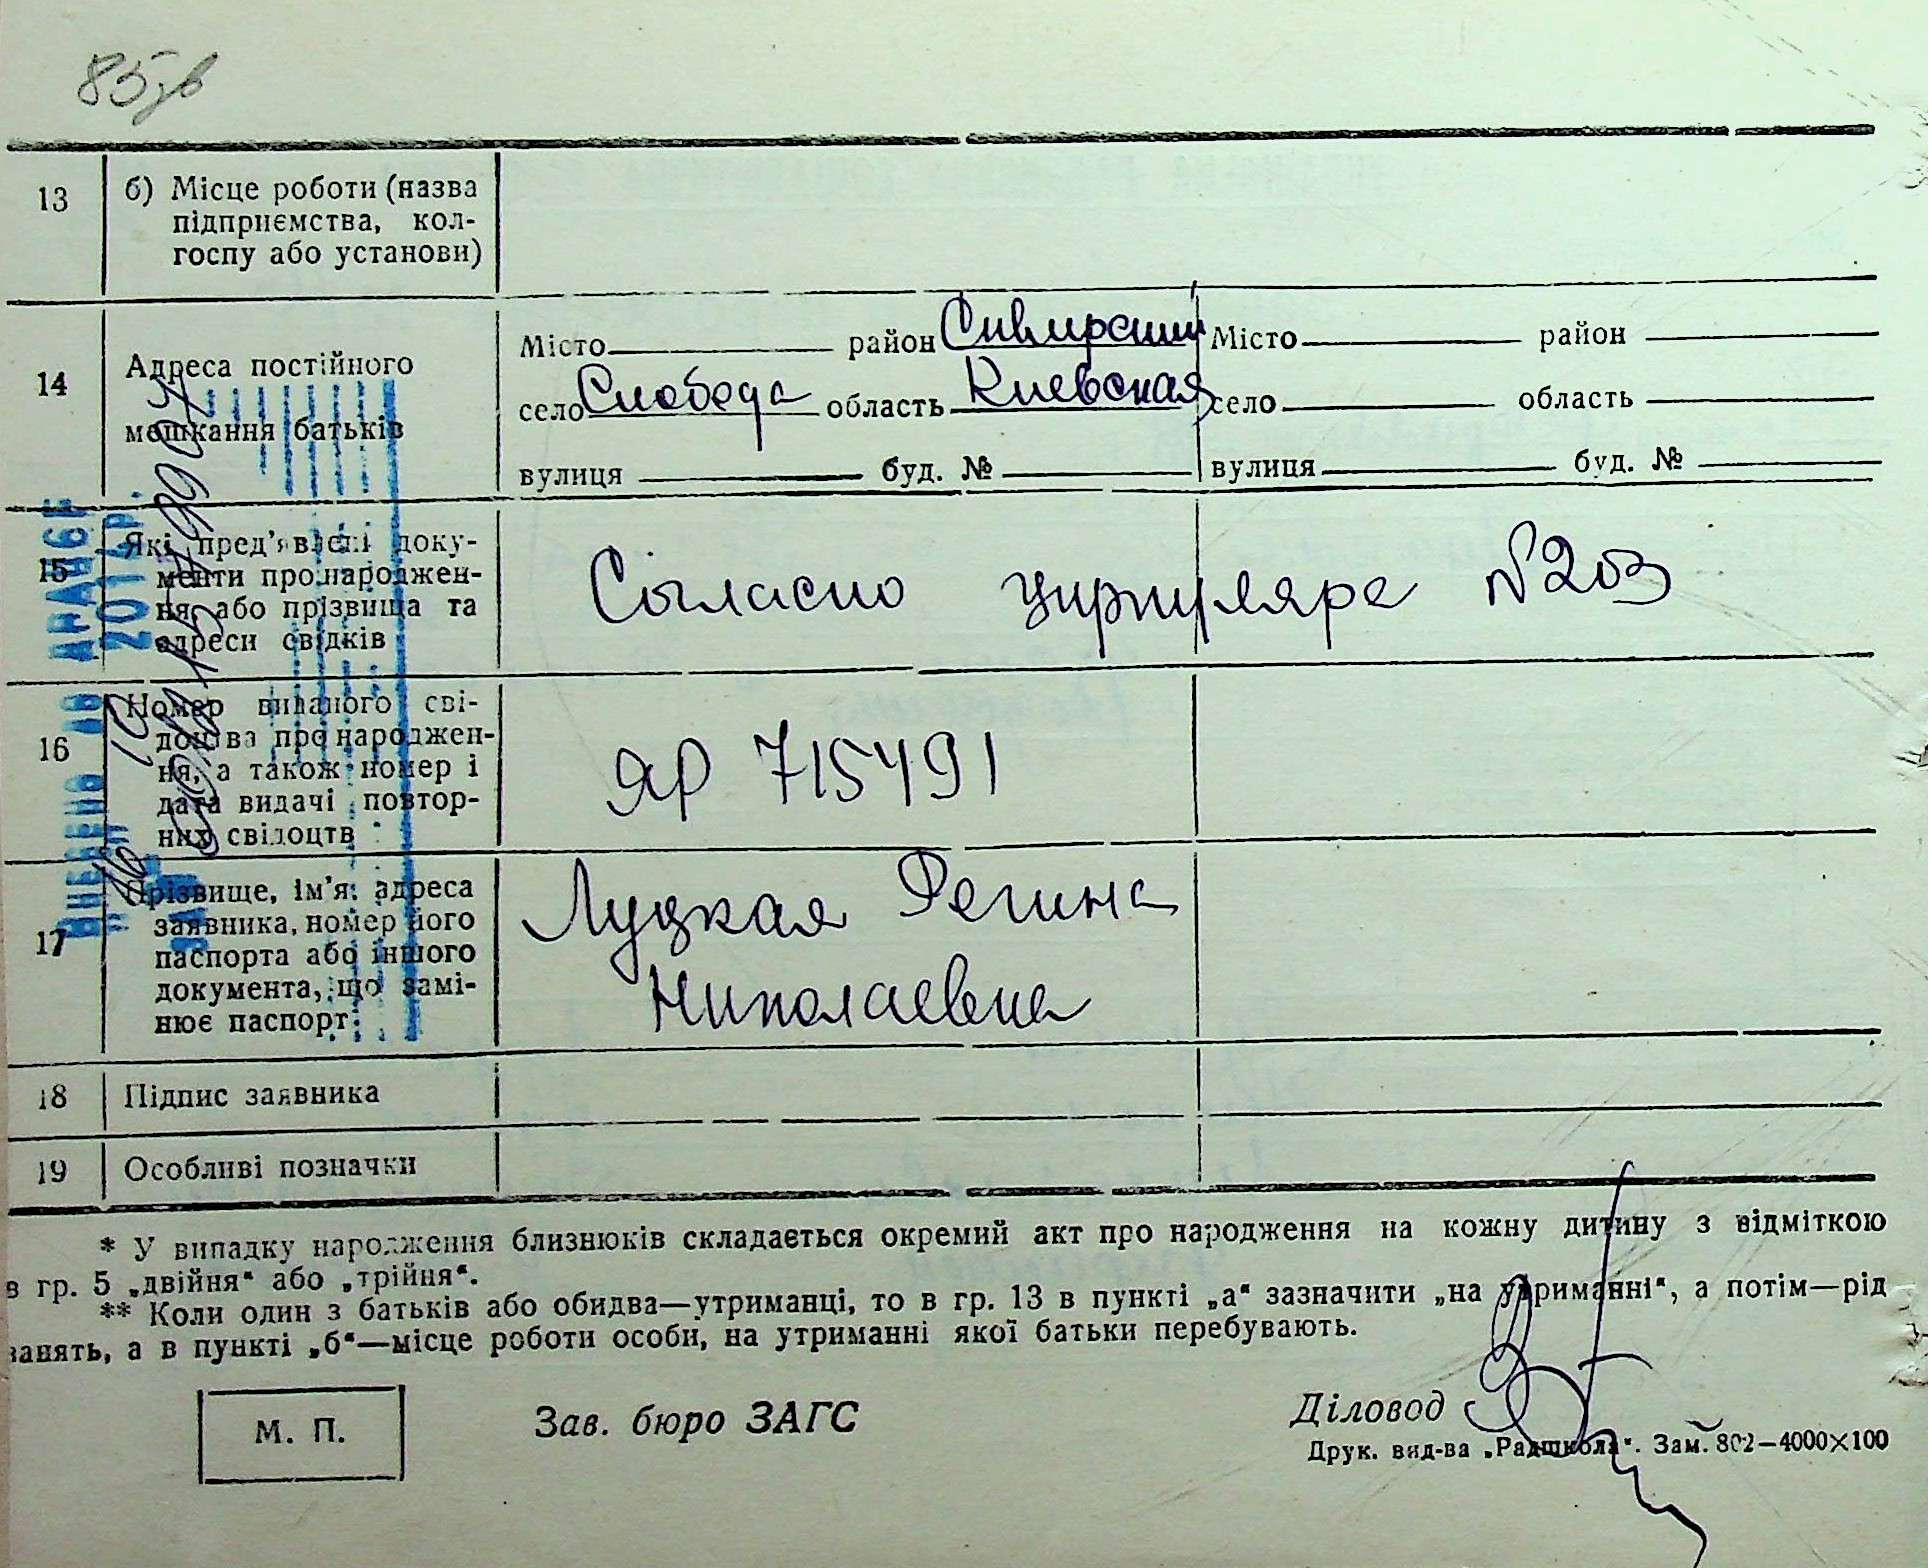 85зв
13 б) Місце роботи (назва
підприємства, кол-
госпу або установи)
14 Адреса постійного
мешкання батьків
Місто район Сквирский Місто район
село Слобода область Киевская село область
вулиця буд. № вулиця буд. №
15 Які пред'явлені доку-
менти про народжен-
ня, або прізвища та
адреси свідків
Согласно циркуляра №203
16 Номер виданого сві-
доцтва про народжен-
ня, а також номер і
дата видачі повтор-
них свідоцтв
ЯР 715491
17 Прізвище, ім'я, адреса
заявника, номер його
паспорта або іншого
документа, що замі-
нює паспорт
Луцкая Регина
Николаевна
18 Підпис заявника
19 Особливі позначки
ВНЕСЕНО ДО ДРАЦСГ
"16" 10 2014 р.
* У випадку народження близнюків складається окремий акт про народження на кожну дитину з відміткою
в гр. 5 „двійня“ або „трійня“.
** Коли один з батьків або обидва—утриманці, то в гр. 13 в пункті „а“ зазначити „на утриманні“, а потім—рід
занять, а в пункті „б“—місце роботи особи, на утриманні якої батьки перебувають.
М. П.
Зав. бюро ЗАГС
Діловод
Друк. вид-ва „Радшкола“. Зам. 802—4000×100